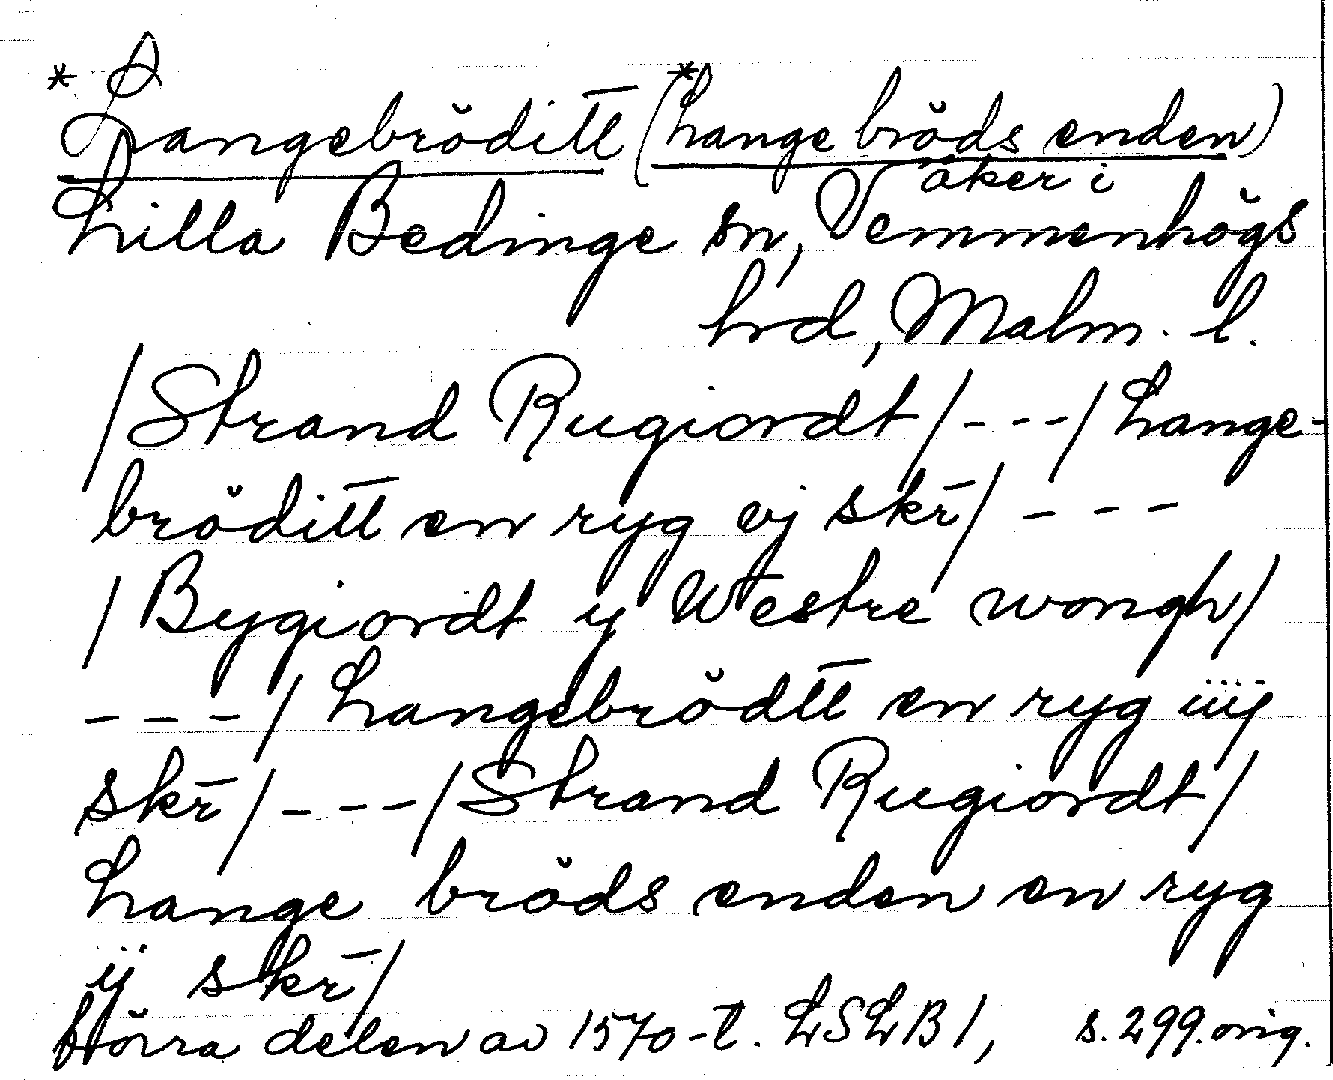 * Langebröditt (*Lange bröds enden)
åker i
Lilla Bedinge sn, Vemmenhögs
hrd, Malm. l.
/Strand Rugiordt/---/Lange-
bröditt en ryg ej skr̄/ ---
/Bygiordt y Westre wongh/
---/Langebrödtt en ryg iiij
skr̄/---/Strand Rugiordt/
Lange bröds enden en ryg
ij skr̄/
förra delen av 1570-t. LSLB 1, s. 299. orig.